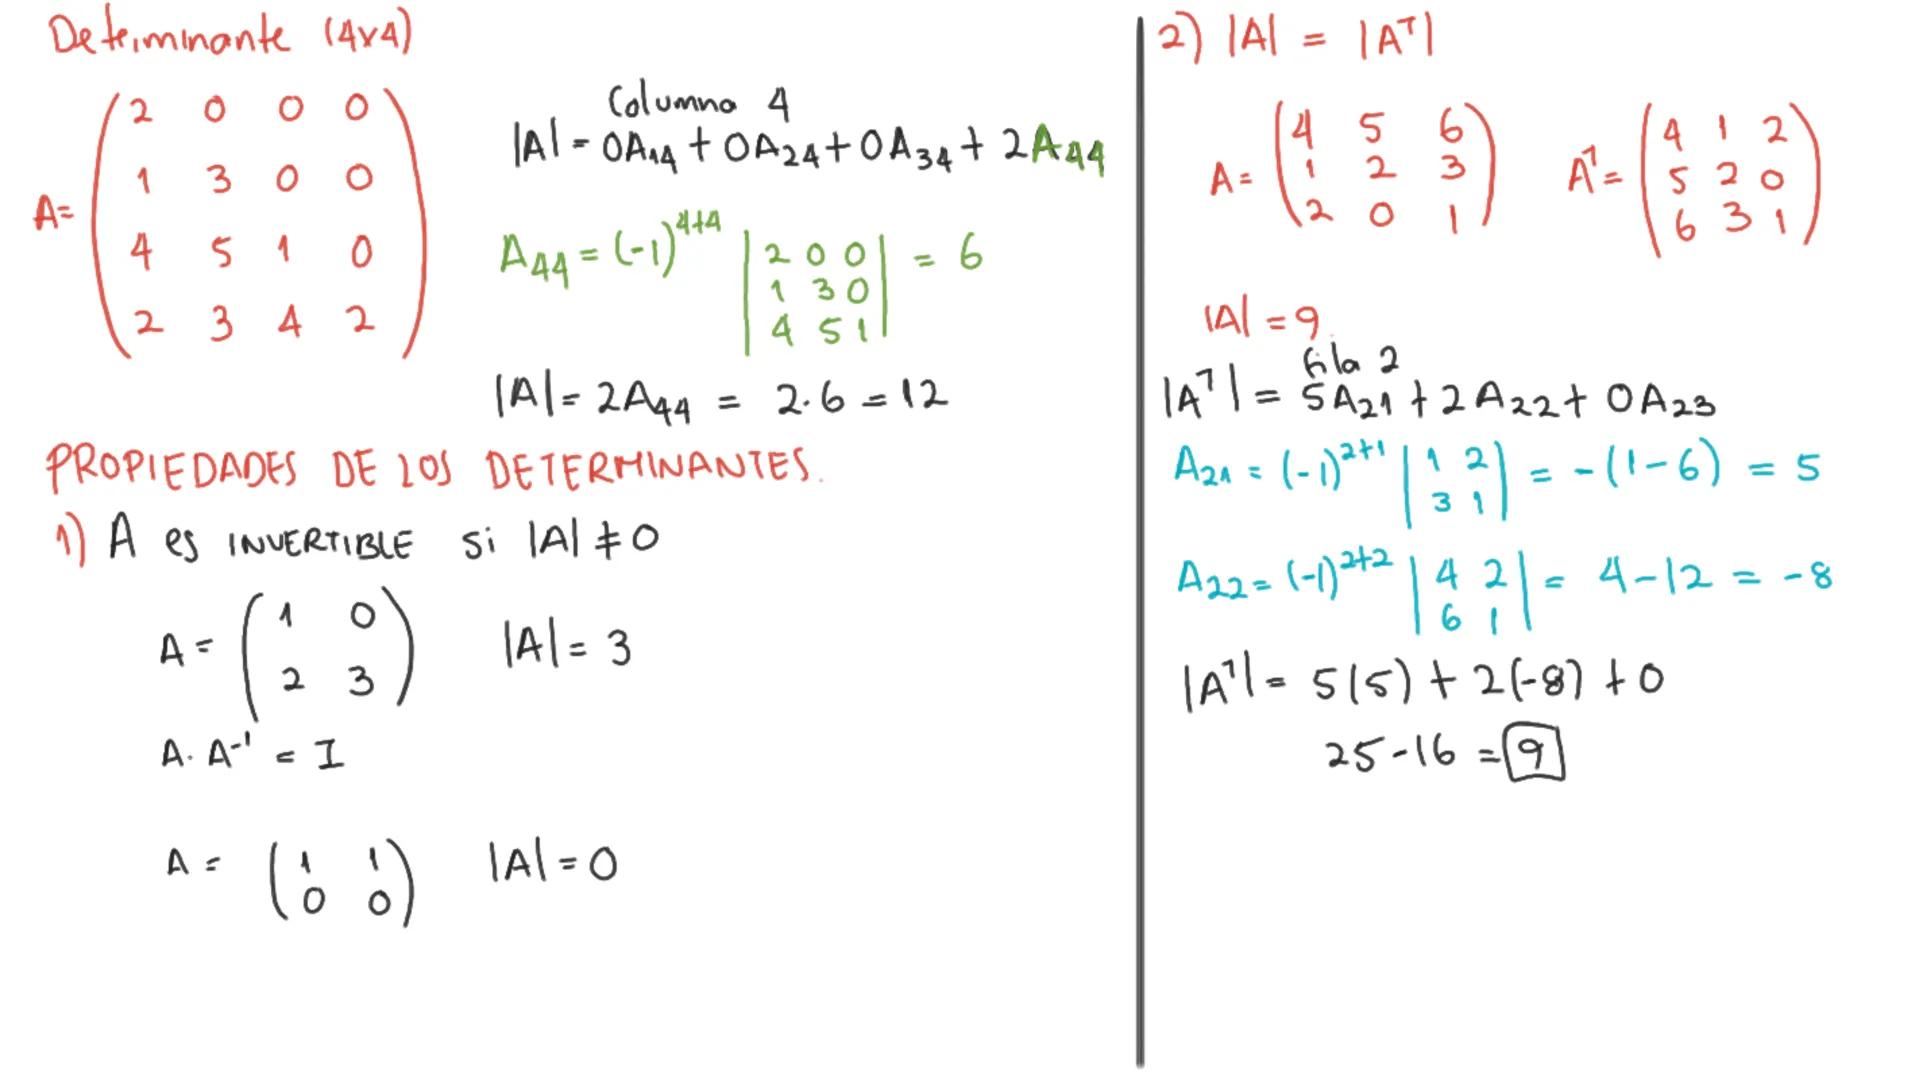 Determinante (4x4)
A= ( 2 0 0 0
1 3 0 0
4 5 1 0
2 3 4 2 )
Columna 4
|A| = 0A14 + 0A24 + 0A34 + 2A44
A44 = (-1)^4+4 | 2 0 0 | = 6
1 3 0
4 5 1
|A| = 2A44 = 2·6 = 12
PROPIEDADES DE LOS DETERMINANTES.
1) A es INVERTIBLE si |A| ≠ 0
A = ( 1 0
2 3 ) |A| = 3
A·A^-1 = I
A = ( 1 1
0 0 ) |A| = 0
2) |A| = |A^T|
A = ( 4 5 6
1 2 3
2 0 1 )
A^T = ( 4 1 2
5 2 0
6 3 1 )
|A| = 9
fila 2
|A^T| = 5A21 + 2A22 + 0A23
A21 = (-1)^2+1 | 1 2 | = -(1-6) = 5
3 1
A22 = (-1)^2+2 | 4 2 | = 4-12 = -8
6 1
|A^T| = 5(5) + 2(-8) + 0
25-16 = 9